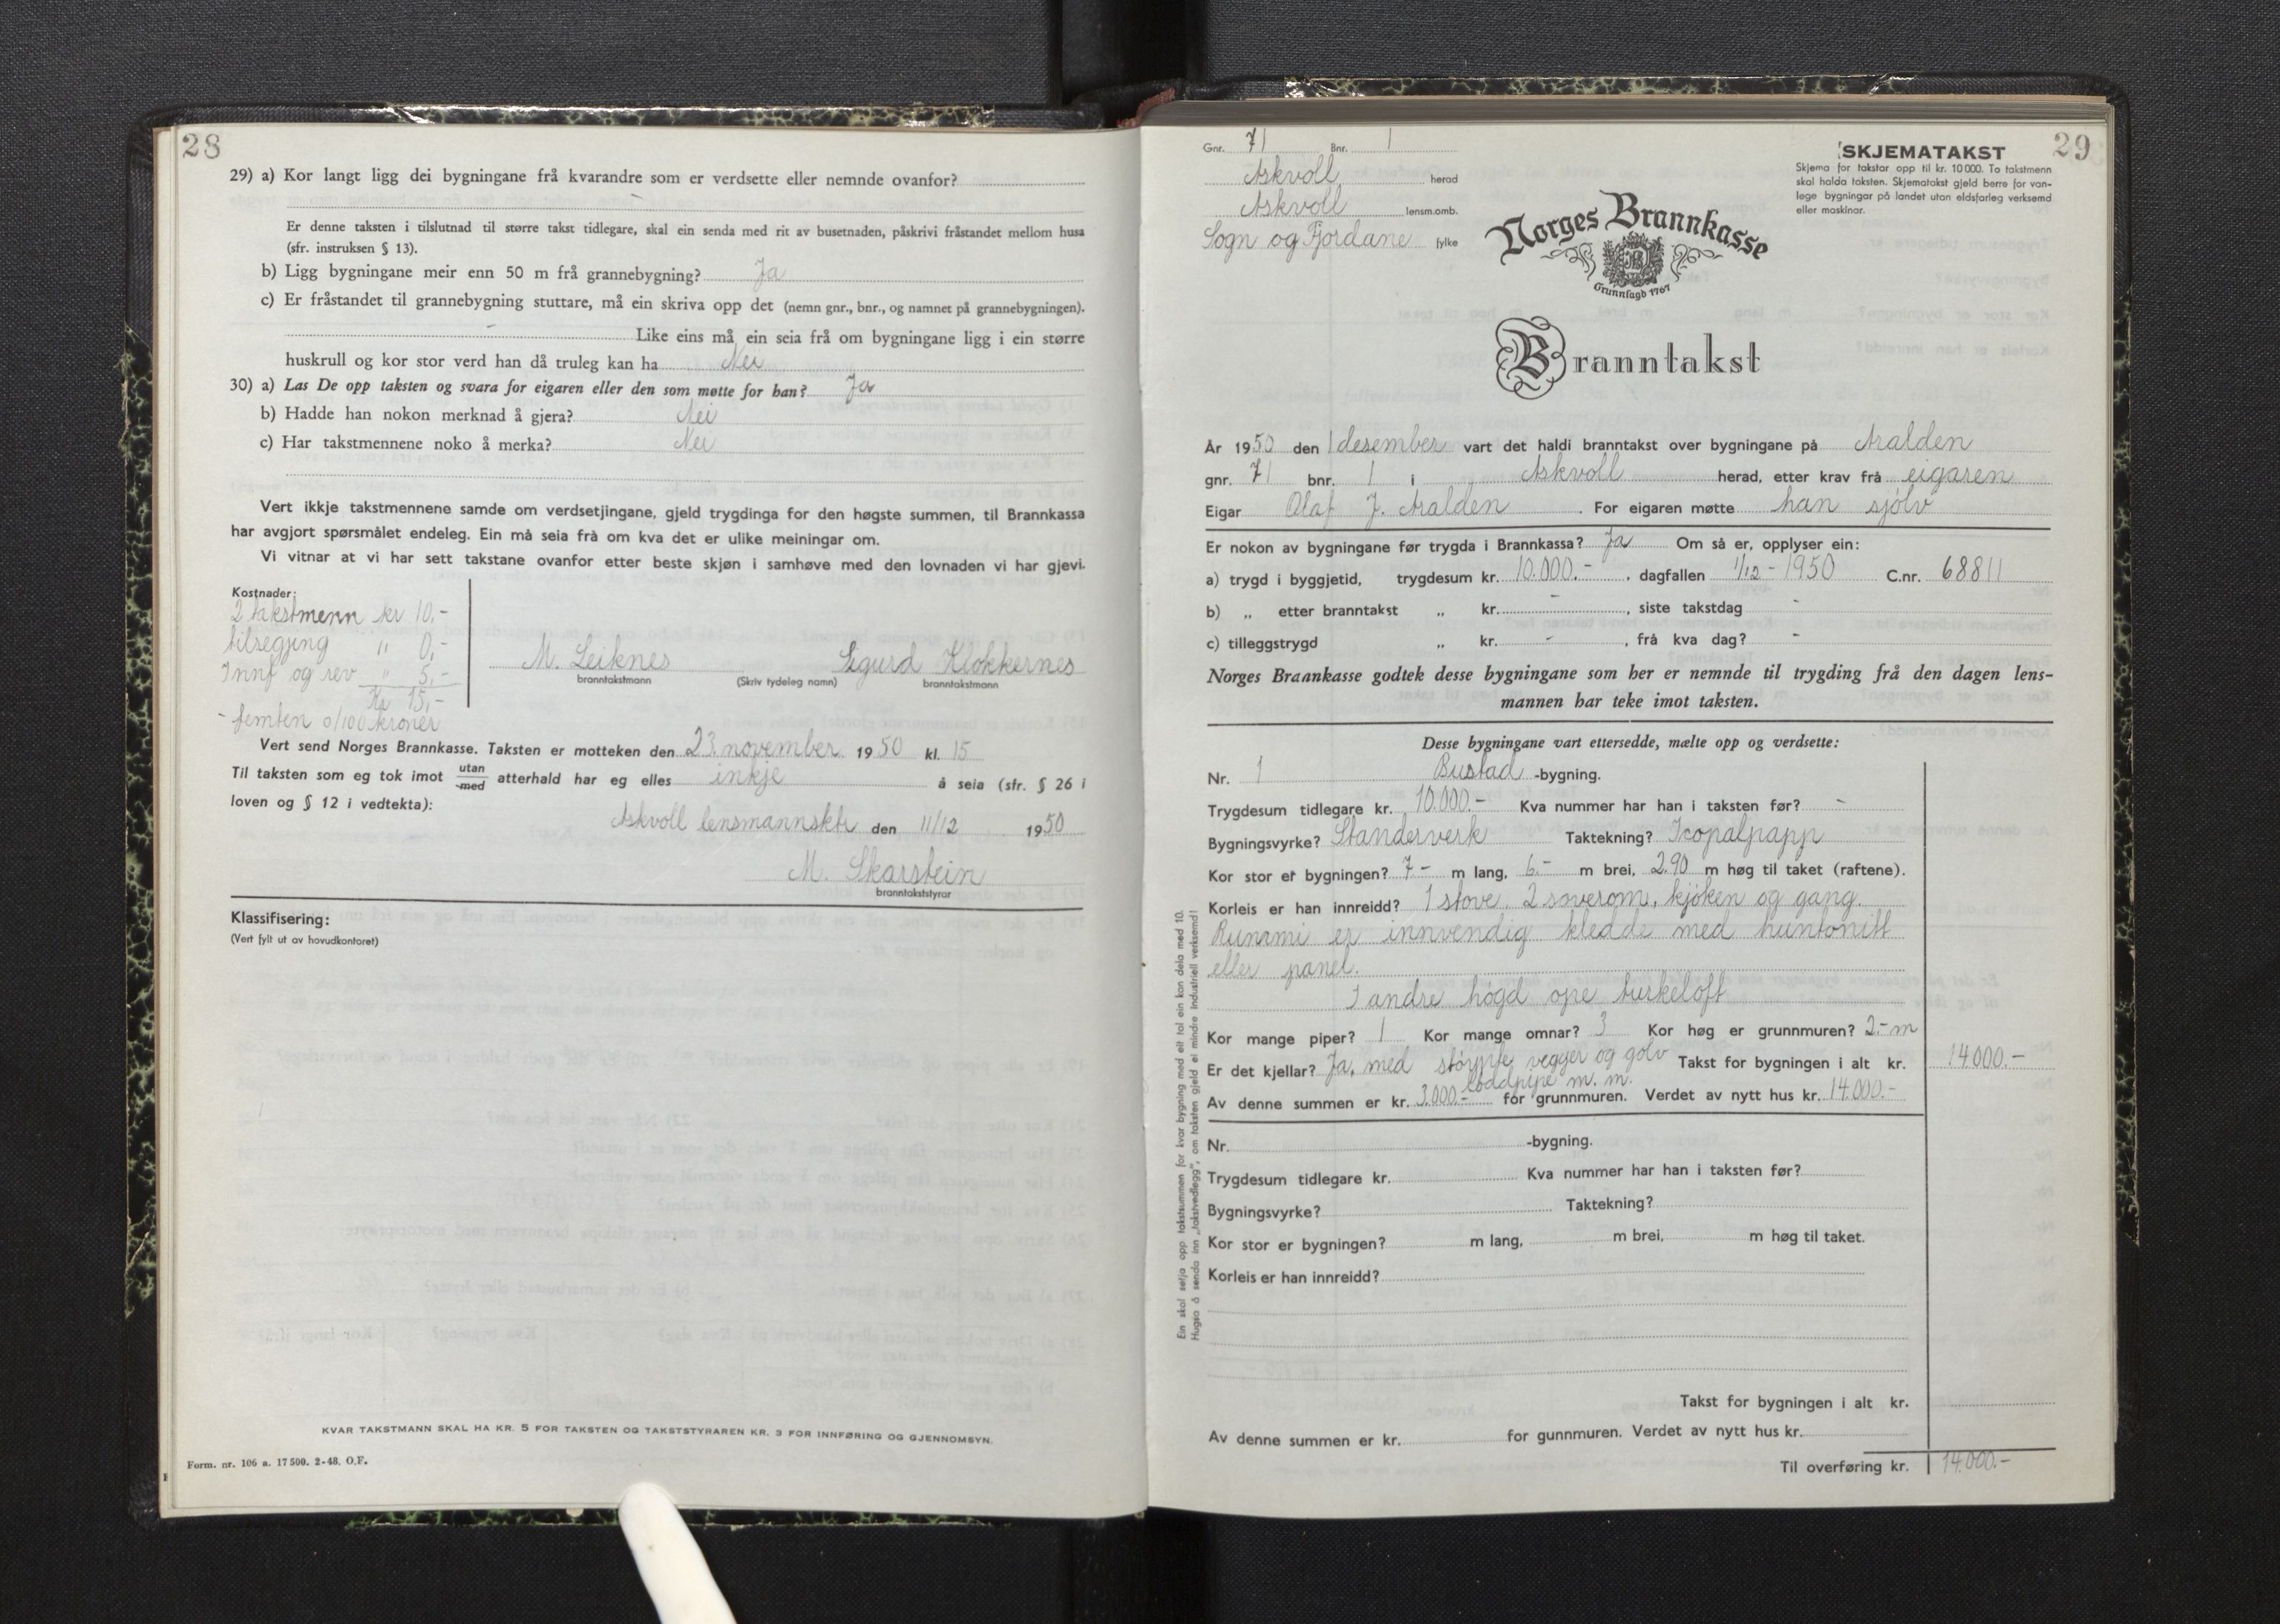 28
29) a) Kor langt ligg dei bygningane frå kvarandre som er verdsette eller nemnde ovanfor?
-
Er denne taksten i tilslutnad til større takst tidlegare, skal ein senda med rit av busetnaden, påskrivi fråstandet mellom husa
(sfr. instruksen § 13).
b) Ligg bygningane meir enn 50 m frå grannebygning? Ja
c) Er fråstandet til grannebygning stuttare, må ein skriva opp det (nemn gnr., bnr., og namnet på grannebygningen).
- Like eins må ein seia frå om bygningane ligg i ein større
huskrull og kor stor verd han då truleg kan ha Nei
30) a) Las De opp taksten og svara for eigaren eller den som møtte for han? Ja
b) Hadde han nokon merknad å gjera? Nei
c) Har takstmennene noko å merka? Nei
Vert ikkje takstmennene samde om verdsetjingane, gjeld trygdinga for den høgste summen, til Brannkassa
har avgjort spørsmålet endeleg. Ein må seia frå om kva det er ulike meiningar om.
Vi vitnar at vi har sett takstane ovanfor etter beste skjøn i samhøve med den lovnaden vi har gjevi.
Kostnader:
2 takstmenn kr 10,-
tilsegjing " 0,-
Innf og rev " 5,-
Kr 15,-
- femten 0/100 kroner
M. Leiknes Sigurd Klokkernes
branntakstmann (Skriv tydeleg namn) branntakstmann
Vert send Norges Brannkasse. Taksten er motteken den 23. november 1950 kl. 15
Til taksten som eg tok imot utan/med atterhald har eg elles inkje å seia (sfr. § 26 i
loven og § 12 i vedtekta):
Askvoll lensmannsktr den 11/12 1950
M. Skarstein
branntakststyrar
Klassifisering:
(Vert fylt ut av hovudkontoret)
KVAR TAKSTMANN SKAL HA KR. 5 FOR TAKSTEN OG TAKSTSTYRAREN KR. 3 FOR INNFØRING OG GJENNOMSYN.
Form. nr. 106 a. 17 500. 2-48. O.F.
29
Gnr. 71 Bnr. 1
Askvoll herad
Askvoll lensm.omb.
Sogn og Fjordane fylke
SKJEMATAKST
Skjema for takstar opp til kr. 10 000. To takstmenn
skal halda taksten. Skjematakst gjeld berre for van-
lege bygningar på landet utan eldsfarleg verksemd
eller maskinar.
Norges Brannkasse
Grunnlagd 1767
Branntakst
År 1950 den 1 desember vart det haldi branntakst over bygningane på Aralden
gnr. 71 bnr. 1 i Askvoll herad, etter krav frå eigaren
Eigar Olaf J. Aralden. For eigaren møtte han sjölv
Er nokon av bygningane før trygda i Brannkassa? Ja Om så er, opplyser ein:
a) trygd i byggjetid, trygdesum kr. 10.000.-, dagfallen 1/12 - 1950 C.nr. 68811
b) „ etter branntakst „ kr. -, siste takstdag -
c) tilleggstrygd „ kr. -, frå kva dag? -
Norges Braankasse godtek desse bygningane som her er nemnde til trygding frå den dagen lens-
mannen har teke imot taksten.
Desse bygningane vart ettersedde, mælte opp og verdsette:
Nr. 1 Bustad -bygning.
Trygdesum tidlegare kr. 10.000.- Kva nummer har han i taksten før? -
Bygningsvyrke? Standerverk Taktekning? Icopalpapp
Kor stor er bygningen? 7.- m lang, 6.- m brei, 2.90 m høg til taket (raftene).
Korleis er han innreidd? 1 stove, 2 soverom, kjöken og gang.
Runami er innvendig kledde med huntonitt
eller panel.
I andre högd ope turkeloft
Kor mange piper? 1 Kor mange omnar? 3 Kor høg er grunnmuren? 2.- m
Er det kjellar? Ja, med stöypte vegger og golv Takst for bygningen i alt kr. 14.000.-
loddpipe m. m.
Av denne summen er kr. 3.000.- for grunnmuren. Verdet av nytt hus kr. 14.000.-
Nr. -bygning.
Trygdesum tidlegare kr. Kva nummer har han i taksten før?
Bygningsvyrke? Taktekning?
Kor stor er bygningen? m lang, m brei, m høg til taket.
Korleis er han innreidd?
Takst for bygningen i alt kr.
Av denne summen er kr. for gunnmuren. Verdet av nytt hus kr.
Til overføring kr. 14.000.-
Ein skal setja opp takstsummen for kvar bygning med eit tal ein kan dela med 10.
Hugso å senda inn „takstvedlegg", om taksten gjeld ei mindre industriell verksemd!